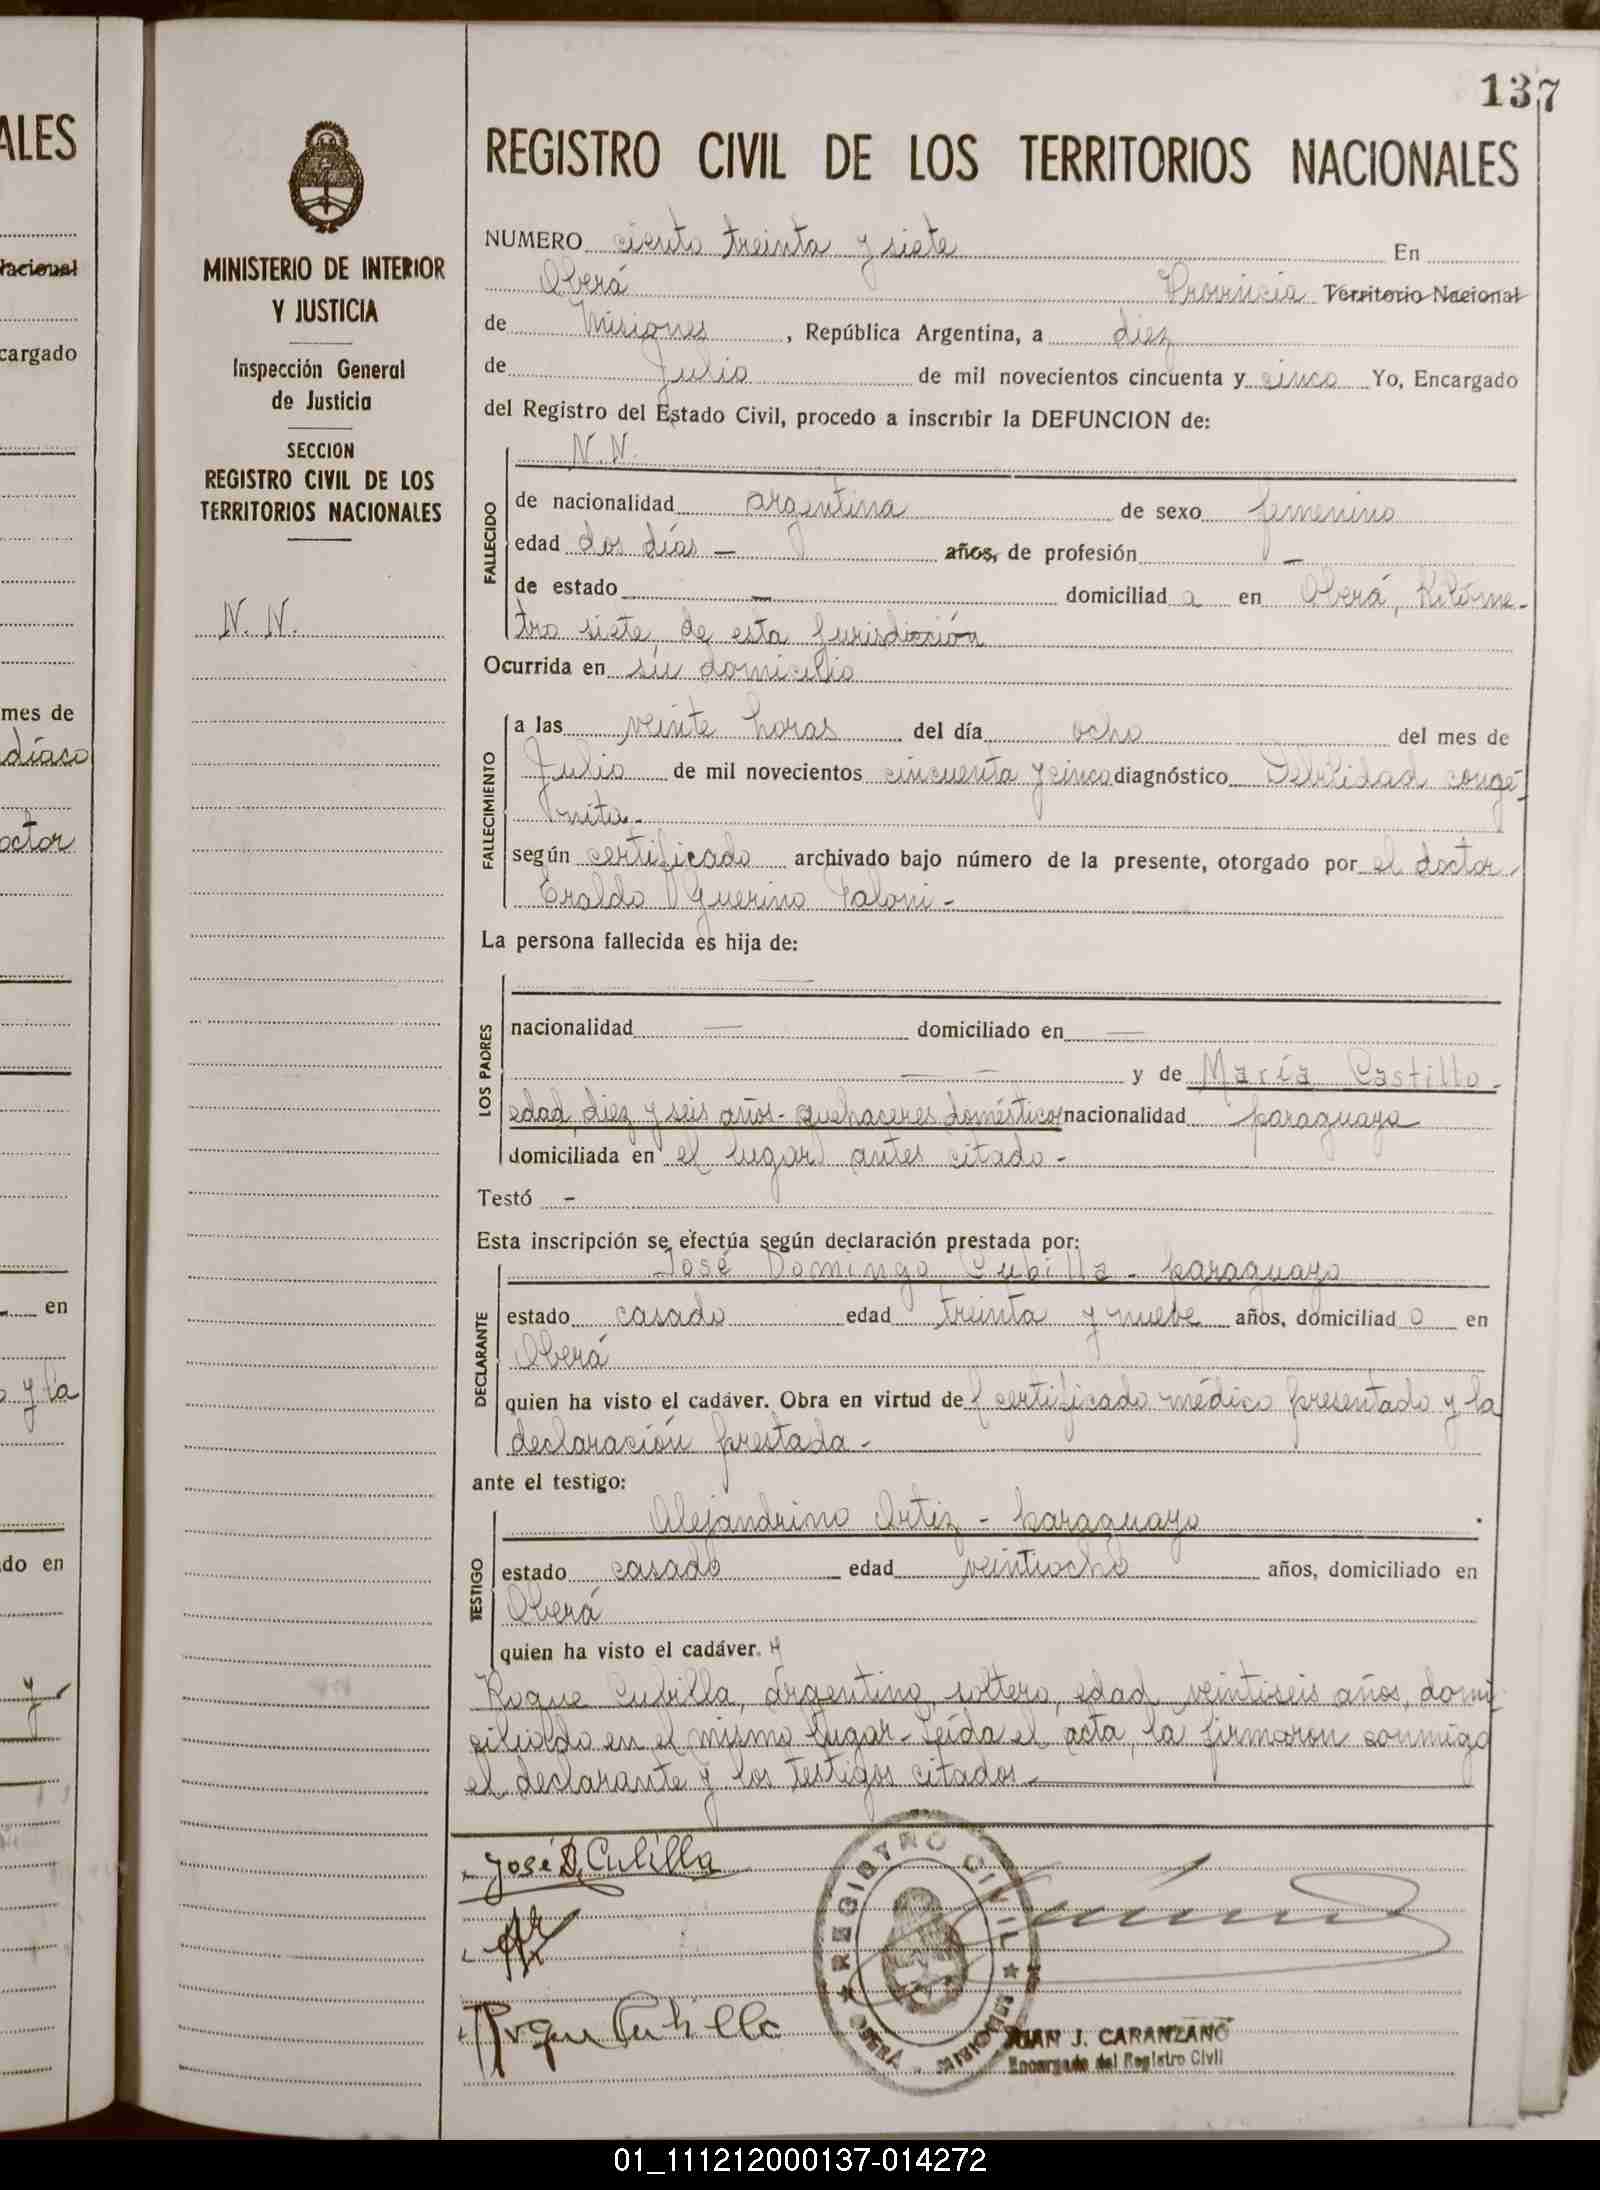 137
REGISTRO CIVIL DE LOS TERRITORIOS NACIONALES
MINISTERIO DE INTERIOR
Y JUSTICIA
Inspección General
de Justicia
SECCION
REGISTRO CIVIL DE LOS
TERRITORIOS NACIONALES
N. N.
NUMERO ciento treinta y siete En
Oberá Provincia Territorio Nacional
de Misiones, República Argentina, a diez
de Julio de mil novecientos cincuenta y cinco Yo, Encargado
del Registro del Estado Civil, procedo a inscribir la DEFUNCION de:
N. N.
FALLECIDO
de nacionalidad argentina de sexo femenino
edad dos días — años, de profesión —
de estado — domiciliad a en Oberá, Kilóme-
tro siete de esta Jurisdicción
Ocurrida en su domicilio
FALLECIMIENTO
a las veinte horas del día ocho del mes de
Julio de mil novecientos cincuenta y cinco diagnóstico Debilidad congé-
nita.-
según certificado archivado bajo número de la presente, otorgado por el doctor
Eraldo Guerino Faloni -
La persona fallecida es hija de:
LOS PADRES
—
nacionalidad — domiciliado en —
— — y de María Castillo -
edad, diez y seis años - quehaceres domésticos nacionalidad paraguaya
domiciliada en el lugar antes citado -
Testó -
Esta inscripción se efectúa según declaración prestada por:
DECLARANTE
José Domingo Cubilla - paraguayo
estado casado edad treinta y nueve años, domiciliad o en
Oberá
quien ha visto el cadáver. Obra en virtud de certificado médico presentado y la
declaración prestada -
ante el testigo:
TESTIGO
Alejandrino Ortiz - paraguayo
estado casado edad veintiocho años, domiciliado en
Oberá
quien ha visto el cadáver. y
Roque Cubilla, argentino, soltero, edad veintiseis años, domi-
ciliado en el mismo lugar - Leída el acta, la firmaron conmigo
el declarante y los testigos citados -
José D. Cubilla
Roque Cubilla
REGISTRO CIVIL
OBERA - MISIONES
JUAN J. CARANZANO
Encargado del Registro Civil
01_111212000137-014272